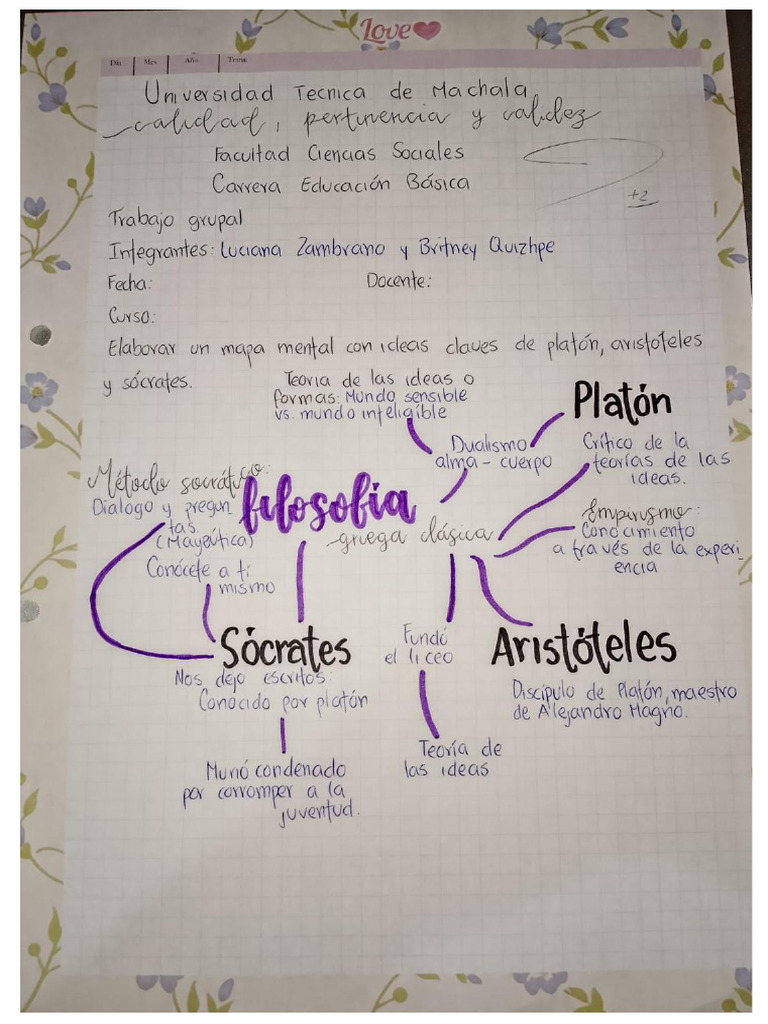 Love
Día Mes Año Tema:
Universidad Tecnica de Machala
calidad, pertinencia y calidez
Facultad Ciencias Sociales
Carrera Educación Básica
+2
Trabajo grupal
Integrantes: Luciana Zambrano y Britney Quizhpe
Fecha: Docente:
Curso:
Elaborar un mapa mental con ideas claves de platón, aristóteles
y sócrates.
Teoria de las ideas o
formas: Mundo sensible
vs. mundo inteligible
Platón
Dualismo
alma - cuerpo
Crítico de la
teorías de las
ideas.
Método socrático:
Dialogo y pregun
tas
(Mayéutica)
filosofia
griega clásica
Empirismo:
Conocimiento
a través de la experi
encia
Conócete a ti
mismo
Sócrates
Nos dejo escritos:
Conocido por platón
Murió condenado
por corromper a la
juventud.
Fundó
el liceo
Teoría de
las ideas
Aristóteles
Discípulo de Platón, maestro
de Alejandro Magno.